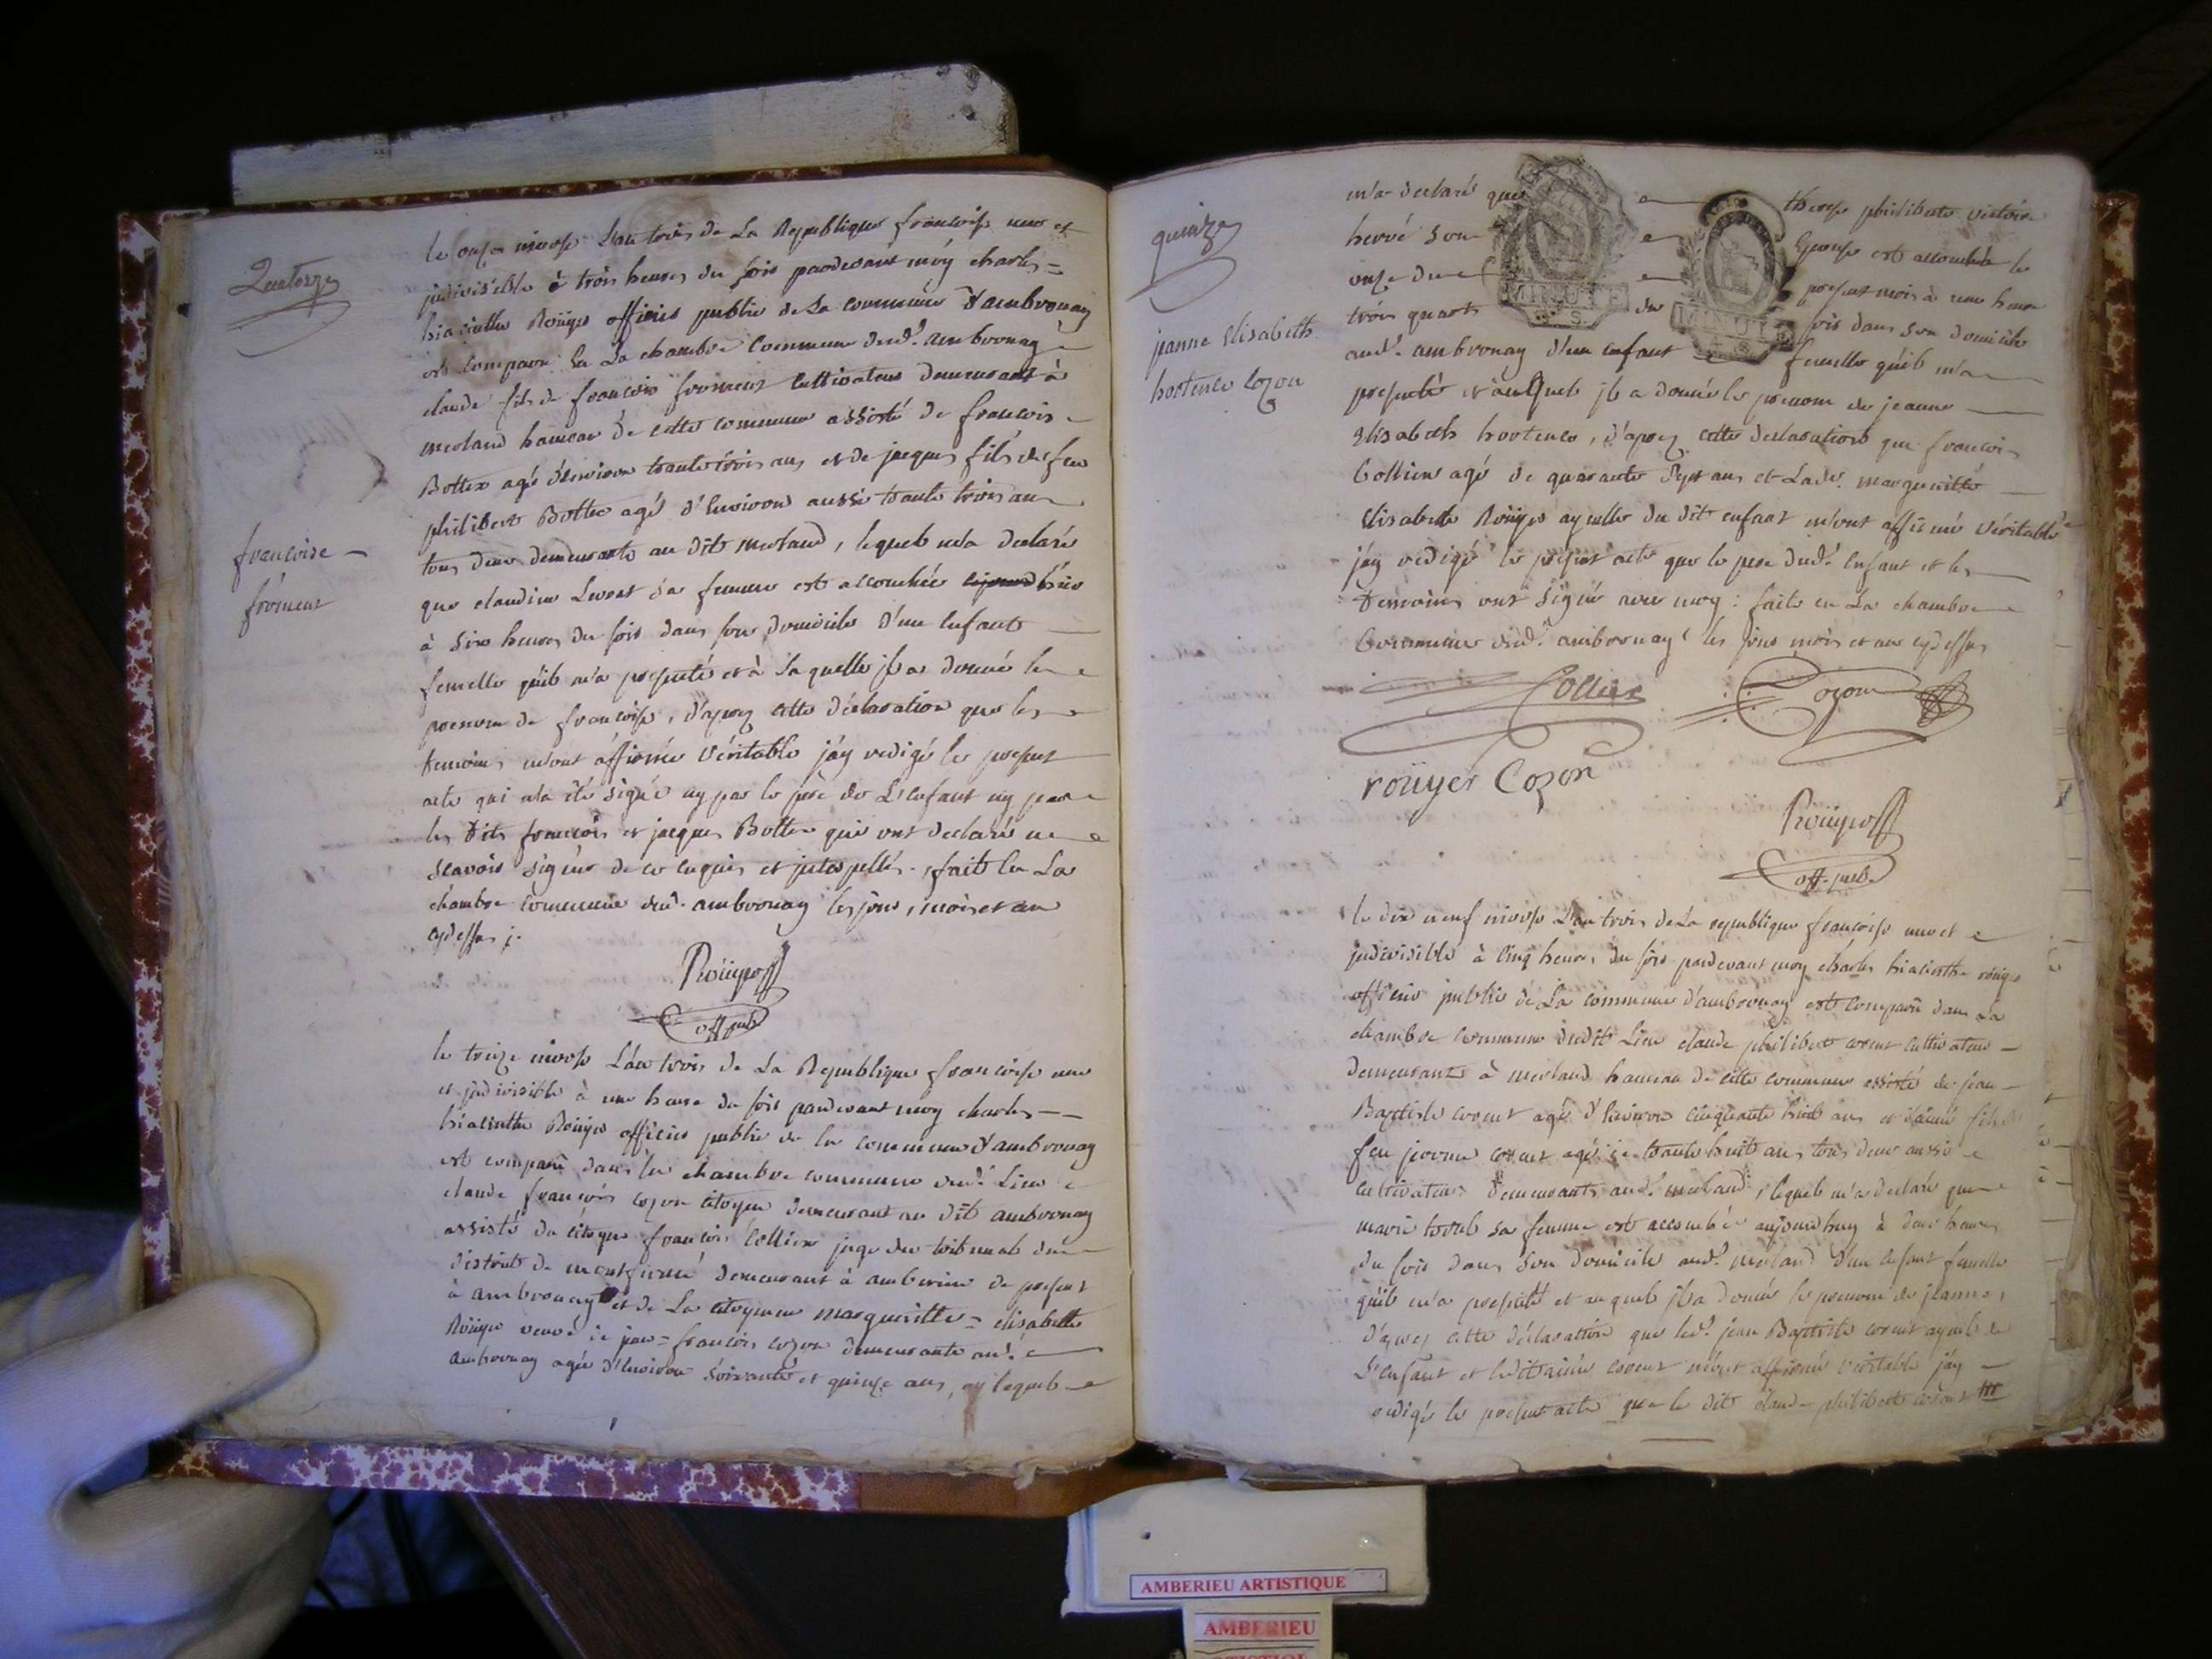 Quatorze
françoise
froment
le onze nivose L'an trois de La Republique françoise une et
jndivisible à trois heures du soir pardevant moy charles =
hiacinthe Roüyer officier public de La commune d'ambronay
est comparu en La chambre Commune dud.t ambronay
claude fils de françois froment Cultivateur demeurant à
merland hameau de cette commune assisté de françois
Bottex agé d'environ trante trois ans et de jacques fils de feu
philibert Bottex agé d'Environ aussi trante trois ans
tous deux demeurants au dit merland, lequel m'a declaré
que claudine sa femme est accouchée
à six heures du soir dans son domicile d'un Enfant
femelle qu'il m'a presenté et à laquelle jl a donné le
prenom de françoise, d'apres cette déclaration que les
temoins m'ont affirmé véritable j'ay redigé le present
acte qui n'a été signé ny par le père de L'enfant ny par
les dits françois et jacques Bottex qui ont declaré ne
scavoir signer de ce enquis et jnterpellés. fait en La
chambre commune dud. ambronay les jour, mois et an
cydessus
Roüyer
off pub
le treize nivose L'an trois de La Republique françoise une
et jndivisible à une heure du soir pardevant moy charles
hiacinthe Roüyer officier public de la commune d'ambronay
est comparu dans la chambre commune dud.t Lieu
claude françois cozon citoyen demeurant au dit ambronay
assisté du citoyen françois Collier juge du tribunal du
district de montferme demeurant à amberieu de present
à ambronay et de La citoyenne margueritte = elisabette
Roüyer veuve de = françois cozon demeurante aud.t
ambronay agée d'Environ soixante et quinze ans, lequel
quinze
jeanne Elisabeth
hortence Cozon
m'a declaré que therese philiberte victoire
hervé son Epouse est accouchée le
onze du present mois à une heure
trois quarts du soir dans son domicile
aud.t ambronay d'un enfant femelle qu'il m'a
presenté et auquel jl a donné le prenom de jeanne
Elisabeth hortence, d'apres cette declaration que françois
Collier agé de quarante sept ans et Lad.e margueritte
Elisabette Roüyer ayeulle du dit enfant m'ont affirmé véritable
j'ay redigé le present acte que le pere dud.t Enfant et les
temoins ont signé avec moy : faite en La chambre
Commune dud.t ambronay les jour mois et an cydessus
Collier Cozon
roüyer Cozon
Roüyer
off. pub.
MINUTE
MINUTE
le dix neuf nivose L'an trois de La republique françoise une et
jndivisible à cinq heures du soir pardevant moy charles hiacinthe roüyer
officier public de La commune d'ambronay est comparu dans La
chambre Commune dudit Lieu claude philibert corent cultivateur
demeurant à merland hameau de cette commune assisté de jean
Baptiste corent agé d'Environ cinquante huit ans et d'aimé fils de
feu jerome corent agé de trante huit ans tous deux aussi
cultivateurs demeurants aud.t merland, lequel m'a declaré que
marie sa femme est accouchée aujourdhuy à deux heures
du soir dans son domicile aud.t merland d'un enfant femelle
qu'il m'a presenté et auquel jl a donné le prenom de jeanne,
D'apres cette déclaration que led.t jean Baptiste corent ayeul de
L'enfant et ledit aimé corent m'ont affirmé véritable j'ay
redigé le present acte que le dit claude philibert corent
AMBERIEU ARTISTIQUE
AMBERIEU
ARTISTIQUE